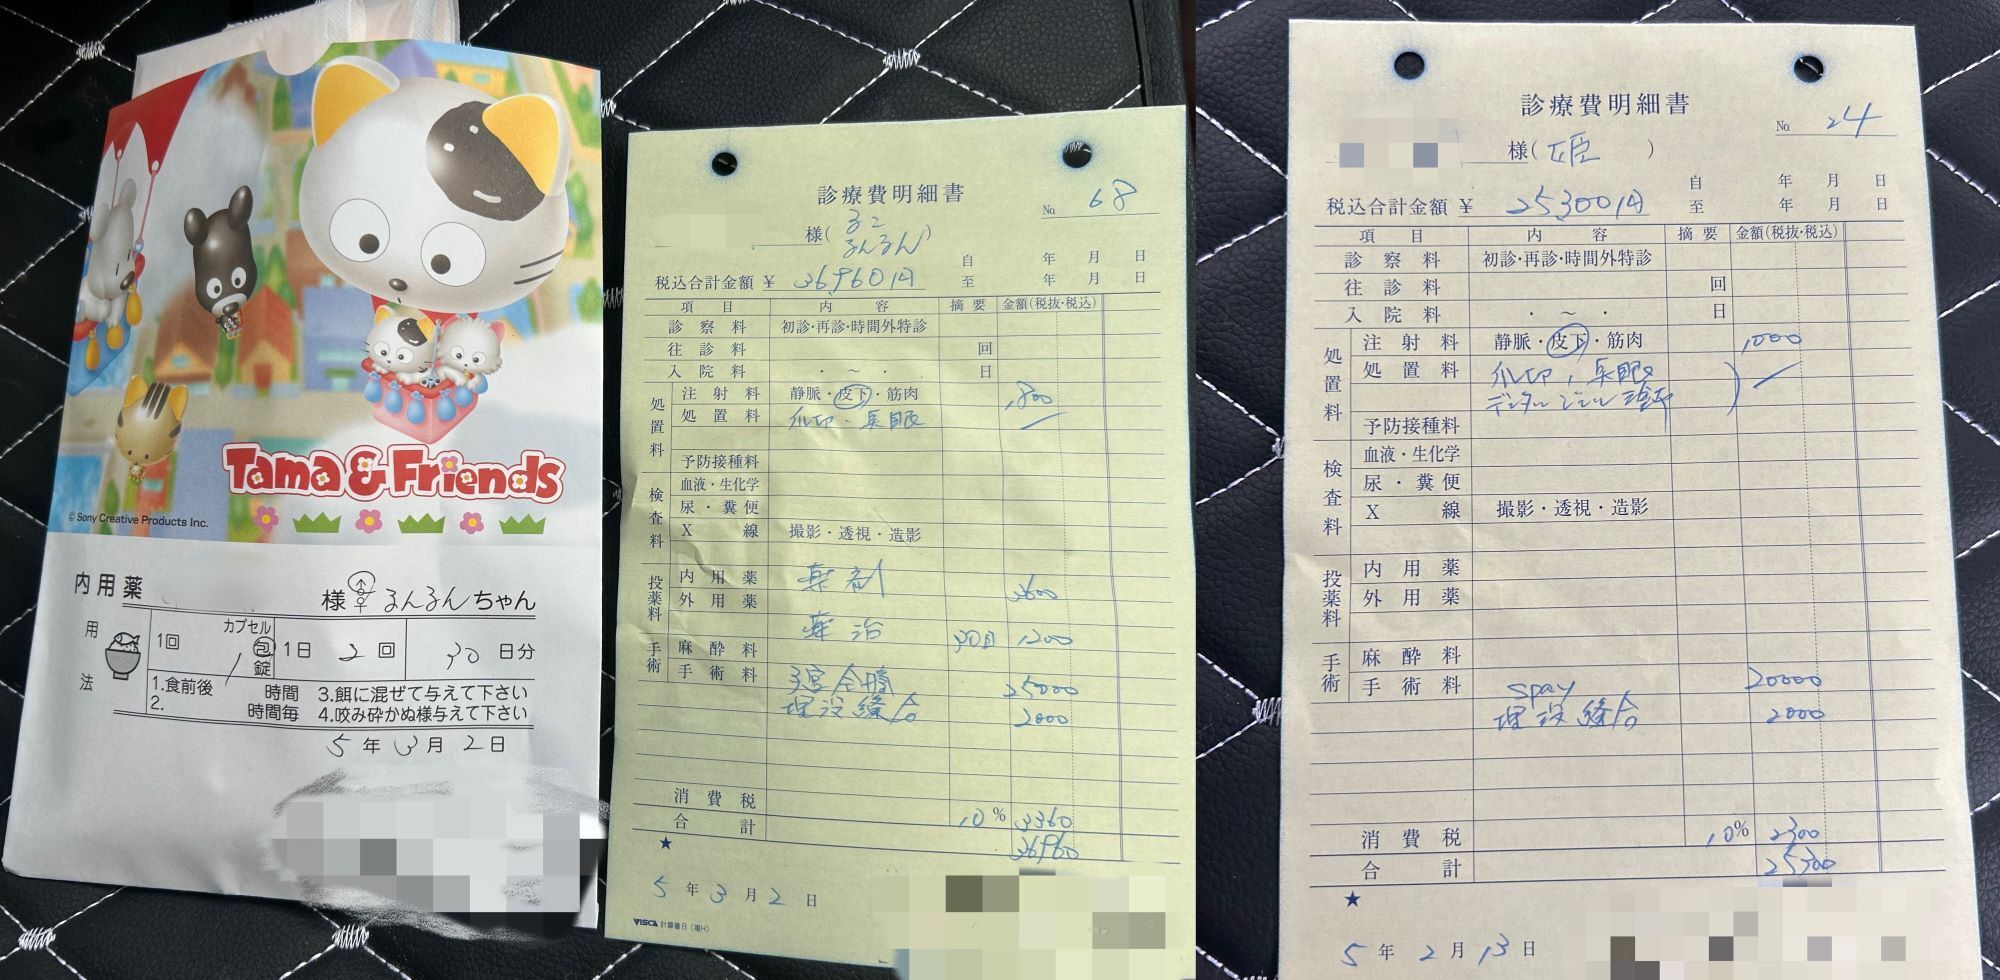 Tama & Friends
© Sony Creative Products Inc.
内用薬
様 るんるんちゃん
用法
1回 1 カプセル 包 錠 1日 2 回 30 日分
1.食前後 時間 3.餌に混ぜて与えて下さい
2. 時間毎 4.咬み砕かぬ様与えて下さい
5 年 3 月 2 日
診療費明細書
No. 68
様( るんるん )
自 年 月 日
税込合計金額 ¥ 36,960円 至 年 月 日
項目 内容 摘要 金額(税抜・税込)
診察料 初診・再診・時間外特診
往診料 回
入院料 ・ ~ ・ 日
処置料
注射料 静脈・皮下・筋肉 1,800
処置料 爪切・耳眼
予防接種料
検査料
血液・生化学
尿・糞便
X線 撮影・透視・造影
投薬料
内用薬 薬剤 3600
外用薬
薬治 30日 1200
手術
麻酔料
手術料 子宮全摘 25000
埋没縫合 2000
消費税 10% 3360
合計 36960
★
5 年 3 月 2 日
VISCA 計算書B(複H)
診療費明細書
No. 24
様( 姫 )
自 年 月 日
税込合計金額 ¥ 25300円 至 年 月 日
項目 内容 摘要 金額(税抜・税込)
診察料 初診・再診・時間外特診
往診料 回
入院料 ・ ~ ・ 日
処置料
注射料 静脈・皮下・筋肉 1,000
処置料 爪切, 耳眼
デンタルジェル
予防接種料
検査料
血液・生化学
尿・糞便
X線 撮影・透視・造影
投薬料
内用薬
外用薬
手術
麻酔料
手術料 spay 20000
埋没縫合 2000
消費税 10% 2300
合計 25300
★
5 年 2 月 13 日